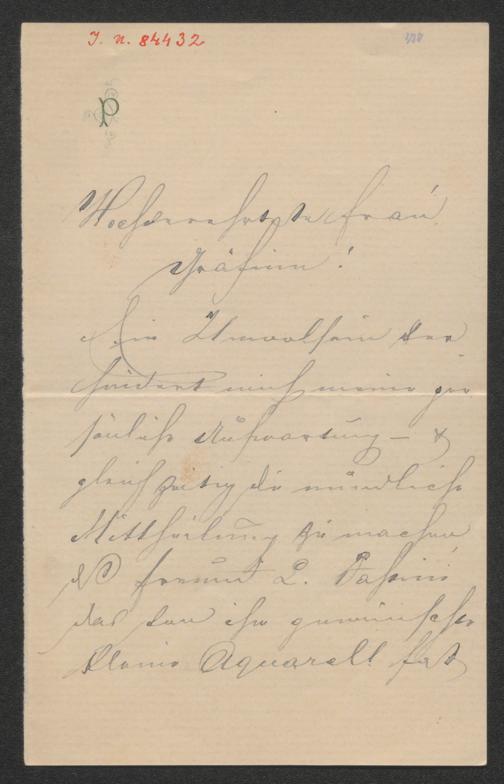 J. N. 84432
P
Hochverehrteste Frau
Gräfinn!
Ein Unwolsein ver
hindert mich meine per
sönliche Aufwartung – &
gleichzeitig die mündliche
Mittheilung zu machen
Freund L. Passini
das von ihr gewünschte
kleine Aquarell hat